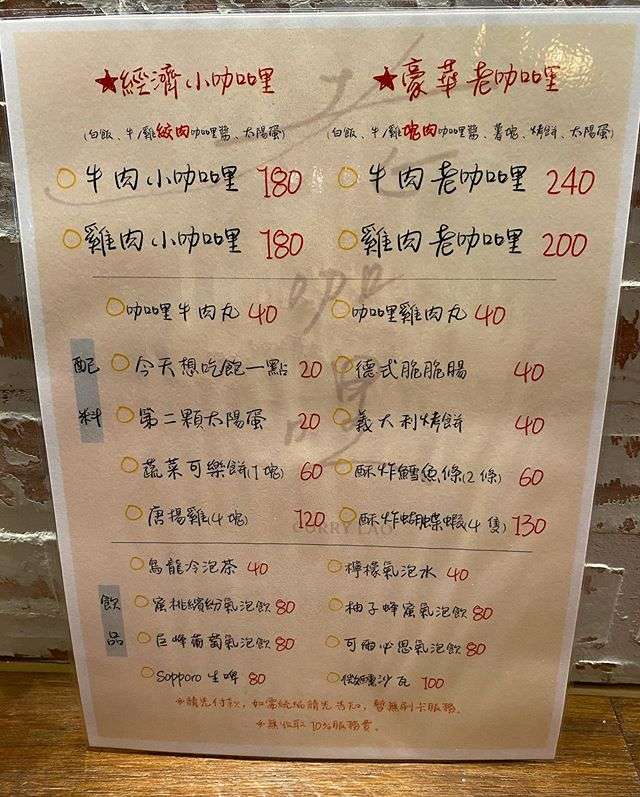 ★經濟小咖哩 ★豪華老咖哩
(白飯、牛/雞絞肉咖哩醬、太陽蛋) (白飯、牛/雞塊肉咖哩醬、薯塊、烤餅、太陽蛋)
牛肉小咖哩 180 牛肉老咖哩 240
雞肉小咖哩 180 雞肉老咖哩 200
配料
咖哩牛肉丸 40 咖哩雞肉丸 40
今天想吃飽一點 20 德式脆脆腸 40
第二顆太陽蛋 20 義大利烤餅 40
蔬菜可樂餅(1塊) 60 酥炸鱈魚條(2條) 60
唐揚雞(4塊) 120 酥炸蝴蝶蝦(4隻) 130
CURRY LAO
飲品
烏龍冷泡茶 40 檸檬氣泡水 40
蜜桃繽紛氣泡飲 80 柚子蜂蜜氣泡飲 80
巨蜂葡萄氣泡飲 80 可爾必思氣泡飲 80
Sapporo 生啤 80 微醺沙瓦 100
※請先付款,如需統編請先告知,暫無刷卡服務.
※無收取10%服務費.